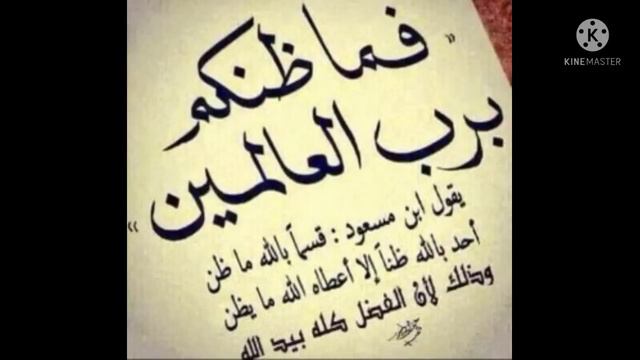 « فما ظنكم
برب العالمين »
يقول ابن مسعود : قسماً بالله ما ظن
أحد بالله ظناً إلا أعطاه الله ما يظن
وذلك لأن الفضل كله بيد الله
KINEMASTER